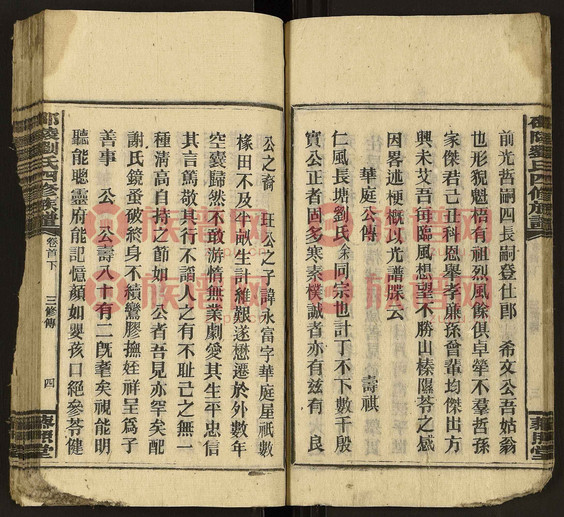 前光哲嗣四長嗣登仕郎 希文公吾姑翁
也形貌魁梧有祖烈風俱卓犖不羣哲孫
家傑君己丑科恩舉孝廉孫曾輩均傑出方
興未艾吾每臨風想望不勝山榛隰苓之感
因畧述梗概以光譜牒云
華庭公傳 壽祺
仁風長塘劉氏余同宗也計丁不下數千殷
實公正者固多寒素樸誠者亦有兹有 大良
公之裔 珏公之子諱永富字華庭星祇數
椽田不及半畝生計維艱遂懋遷於外數年
空嚢歸然不敢游情無業劇愛其生平忠信
其言篤敬其行不謟人之有不耻己之無一
種清高自持之節如 公者吾見亦罕矣配
謝氏鏡重破終身不續鸞膠撫姪祥呈爲子
善事 公 公壽八十有二旣耄矣視能明
聽能聰靈府能記憶顏如嬰孩口絕參苓健
邵陵劉氏四修族譜
卷首下
三修傳
四
藜照堂
邵陵劉氏四修族譜
藜照堂
族譜网
族譜网
族譜网
族譜网